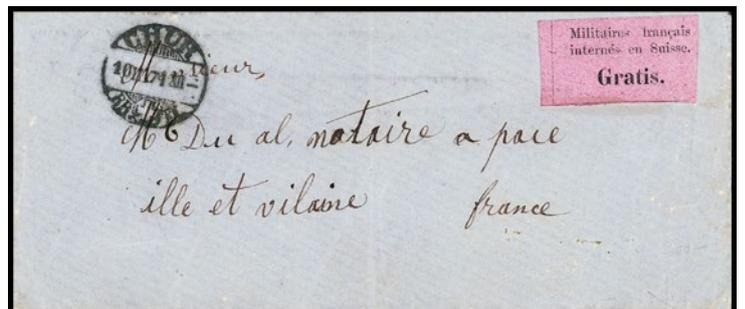 CHUR
Militaires français
internés en Suisse.
Gratis.
Monsieur,
Mr Du al, notaire a pace
ille et vilaine france